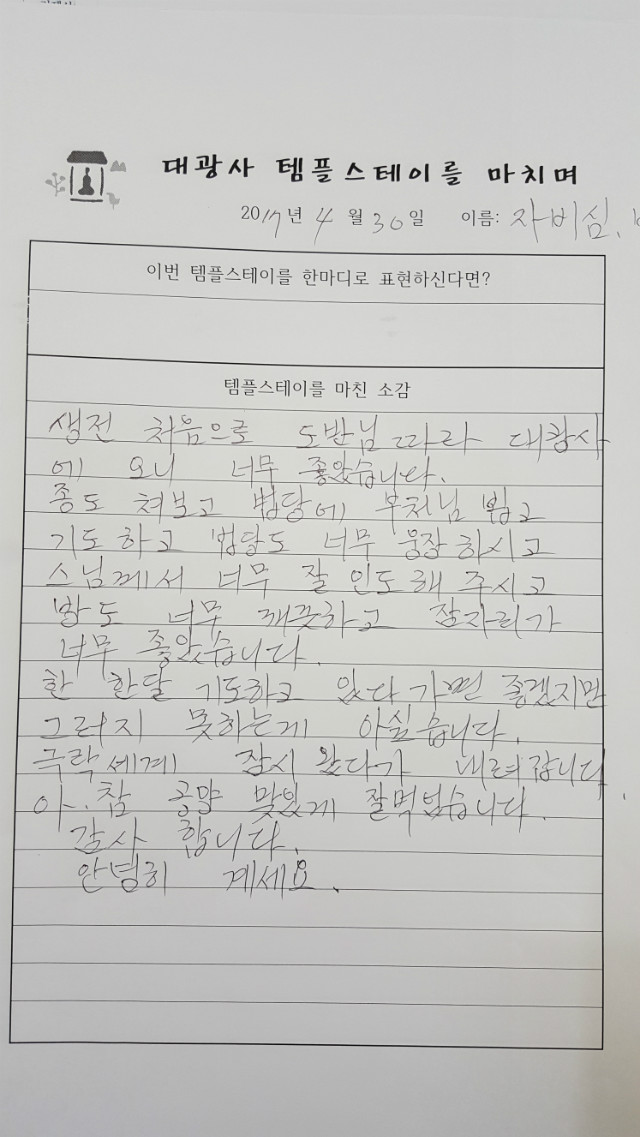 대광사 템플스테이를 마치며
2017년 4월 30일 이름: 자비심.
이번 템플스테이를 한마디로 표현하신다면?
템플스테이를 마친 소감
생전 처음으로 도반님 따라 대광사
에 오니 너무 좋았습니다.
종도 쳐보고 법당에 부처님 뵙고
기도하고 법당도 너무 웅장하시고
스님께서 너무 잘 인도해 주시고
방도 너무 깨끗하고 잠자리가
너무 좋았습니다.
한 한달 기도하고 있다 가면 좋겠지만
그러지 못하는게 아싶습니다.
극락세계 잠시 왔다가 내려갑니다
아. 참 공양 맞있게 잘먹었습니다.
감사 합니다.
안녕히 계세요.